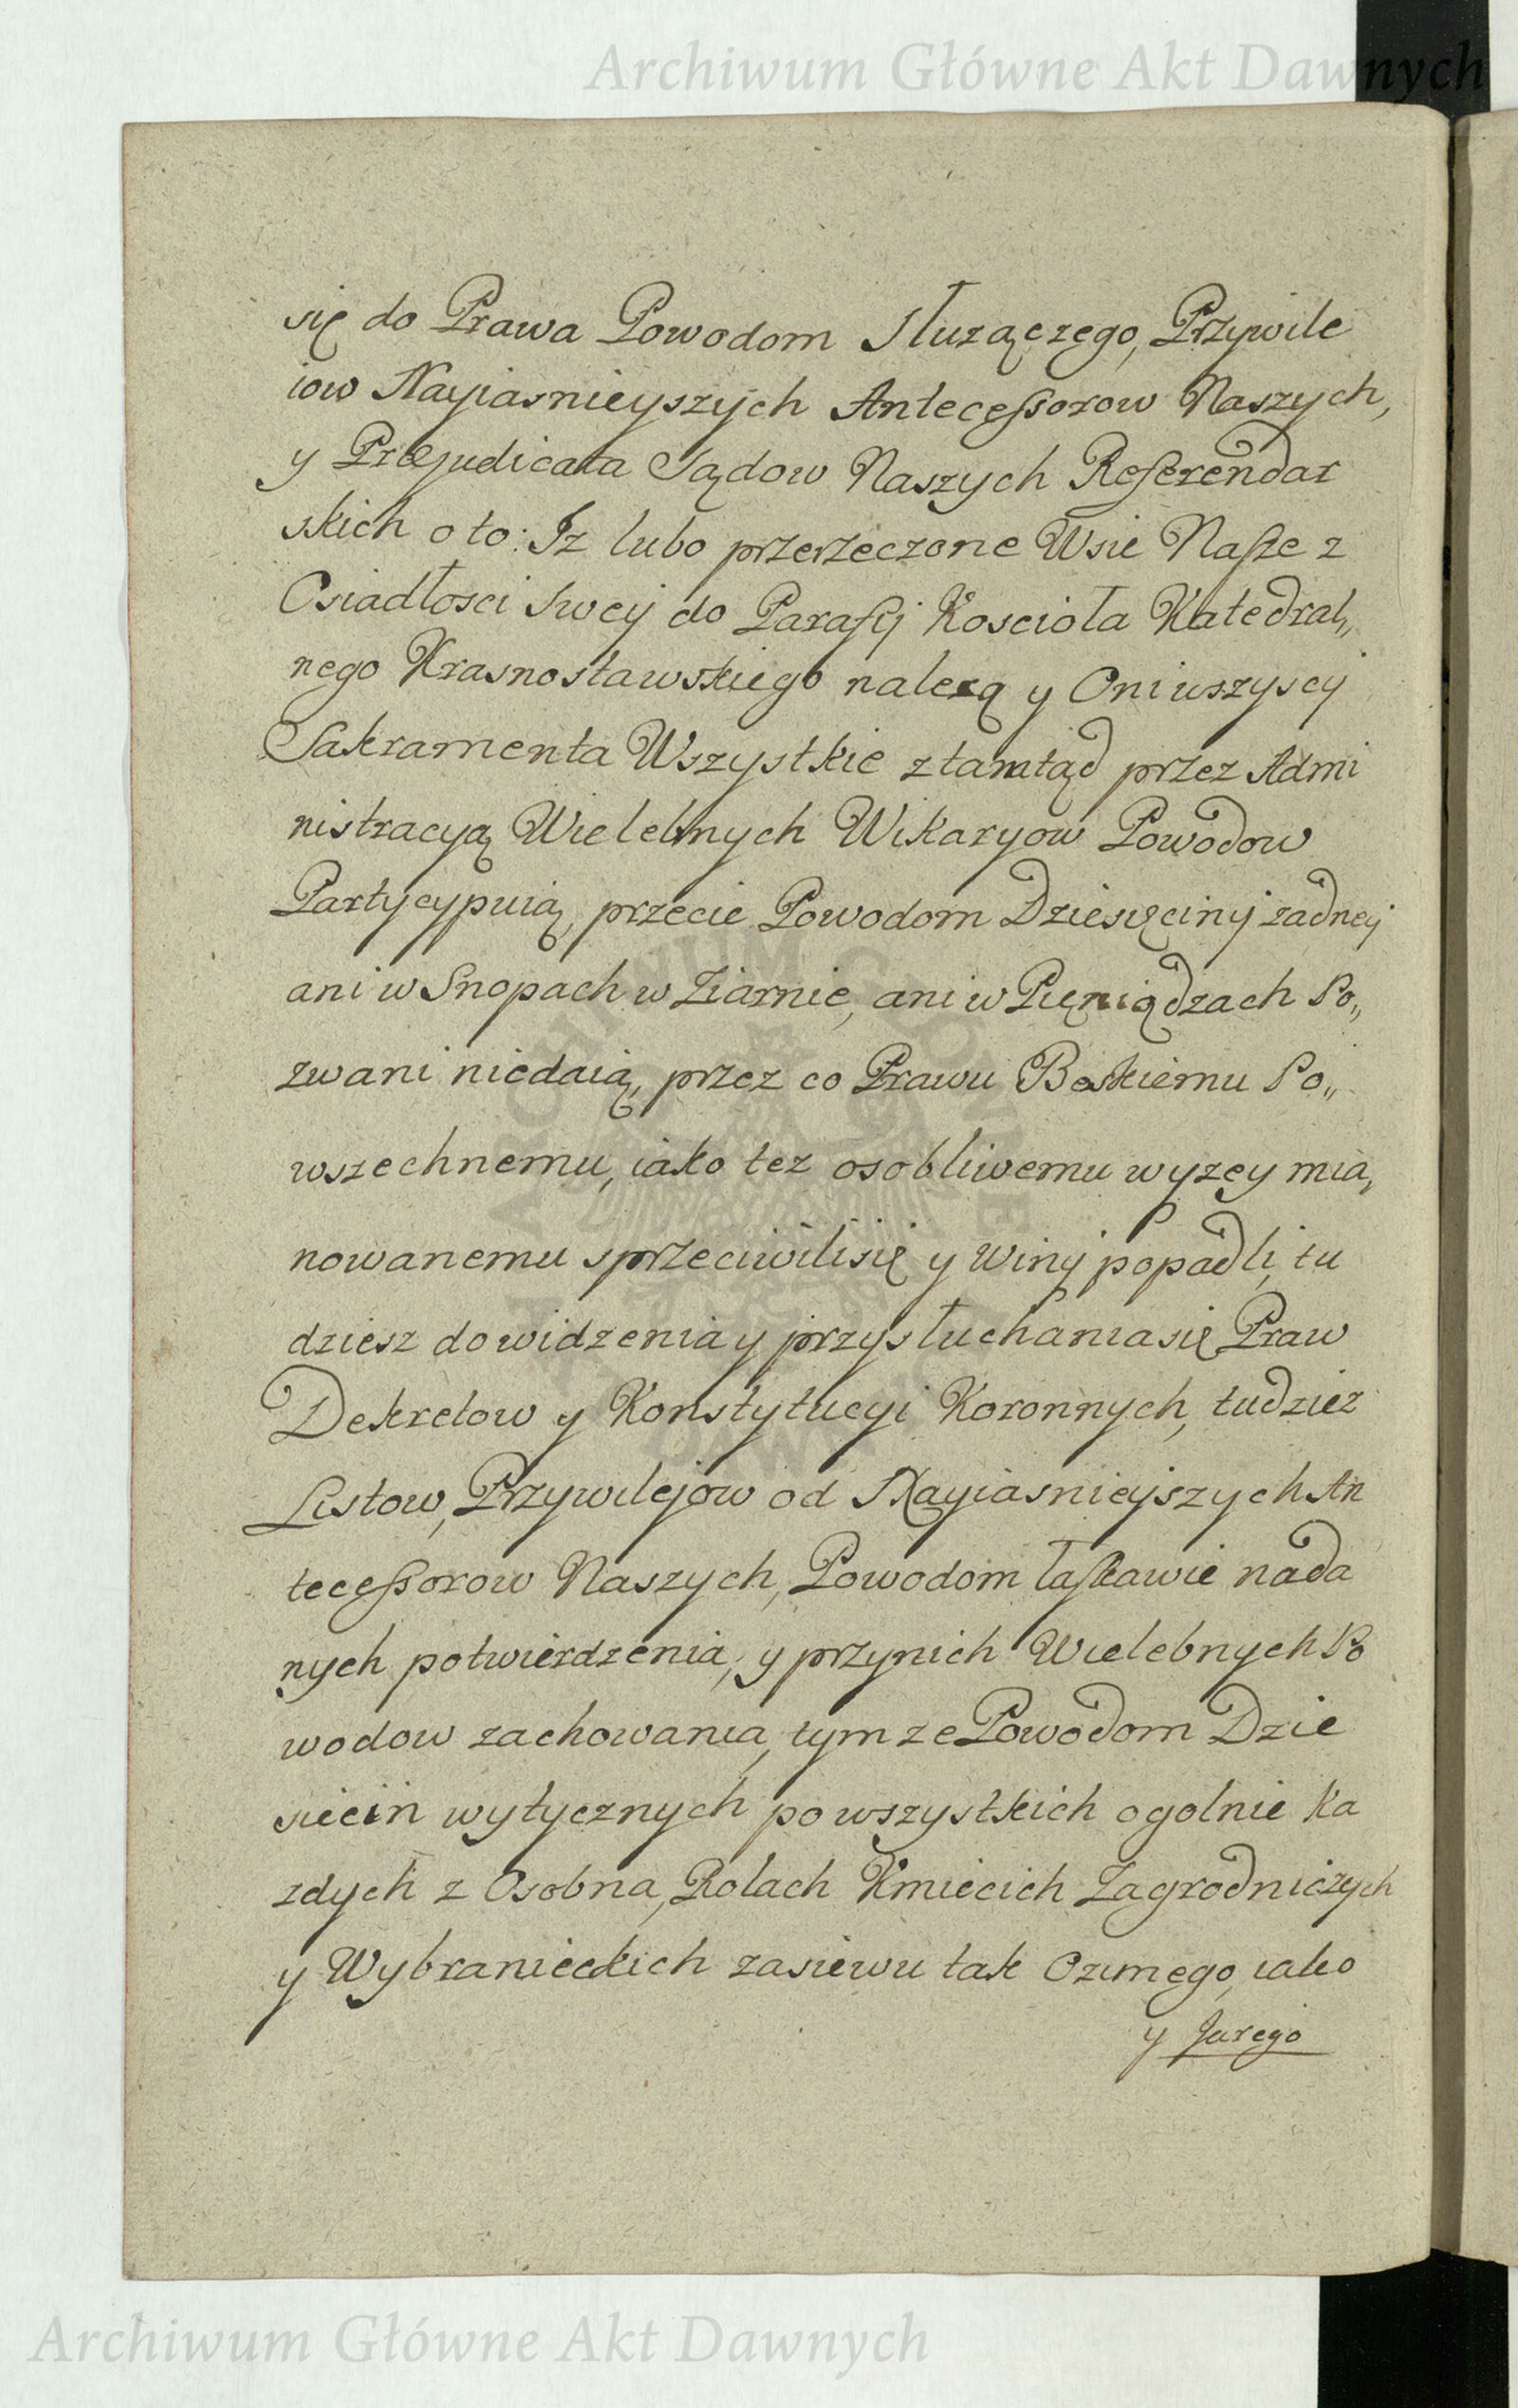 Archiwum Główne Akt Dawnych
się do Prawa Powodom Słuzączego, Przywile
iow Nayiasnieyszych Antecessorow Naszych,
y Præjudicata Sądow Naszych Referendar
skich o to: Iz lubo przerzeczone Wsie Nasze z
Osiadłosci Swey do Parafij Koscioła Katedral„
nego Krasnostawskiego nalezą y Oni wszyscy
Sakramenta Wszystkie ztamtąd przez Admi
nistracyą Wielebnych Wikaryow Powodow
Partycypuią, przecie Powodom Dziesięciny zadney
ani w Snopach w Ziarnie, ani w Pięniądzach Po„
zwani niedaią, przez co Prawu Boskiemu Po„
wszechnemu, iako tez osobliwemu wyzey mia„
nowanemu sprzeciwili się y Winy popadli, tu
dziesz do widzenia y przysłuchania się Praw
Dekretow y Konstytucyi Koronnych, tudziez
Listow, Przywilejow od Nayiasnieyszych An
tecessorow Naszych, Powodom łaskawie nada
nych potwierdzenia, y przynich Wielebnych Po
wodow zachowania, tymze Powodom Dzie
siecin wytycznych po wszystkich ogolnie ka
zdych z Osobna, Rolach Kmiecich Zagrodniczych
y Wybranieckich zasiewu tak Ozimego, iako
y Jarego
Archiwum Główne Akt Dawnych